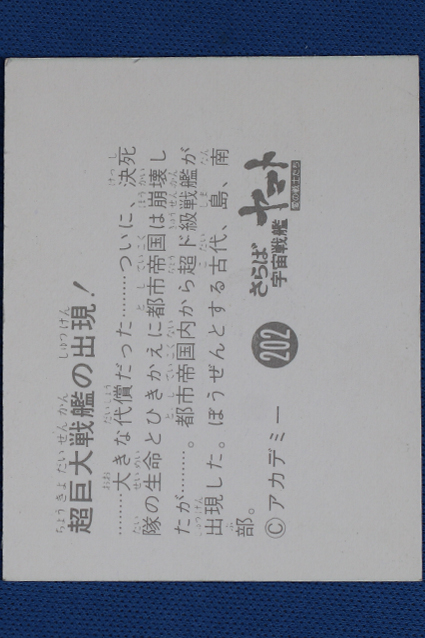 超巨大戦艦の出現！
………大きな代償だった………ついに、決死
隊の生命とひきかえに都市帝国は崩壊し
たが………。都市帝国内から超ド級戦艦が
出現した。ぼうぜんとする古代、島、南
部。
さらば
宇宙戦艦
ヤマト
愛の戦士たち
202
©アカデミー